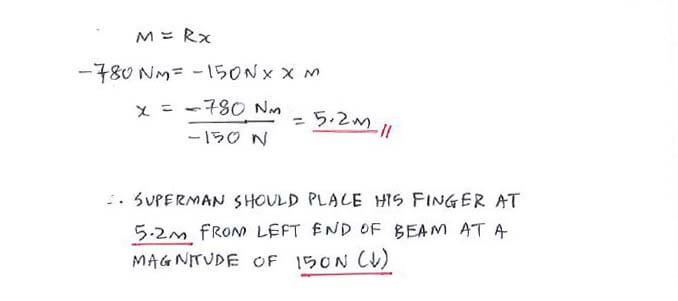 M = Rx
-780 Nm = -150N x x m
x = -780 Nm / -150 N = 5.2m //
∴ SUPERMAN SHOULD PLACE HIS FINGER AT
5.2m FROM LEFT END OF BEAM AT A
MAGNITUDE OF 150N (↓)